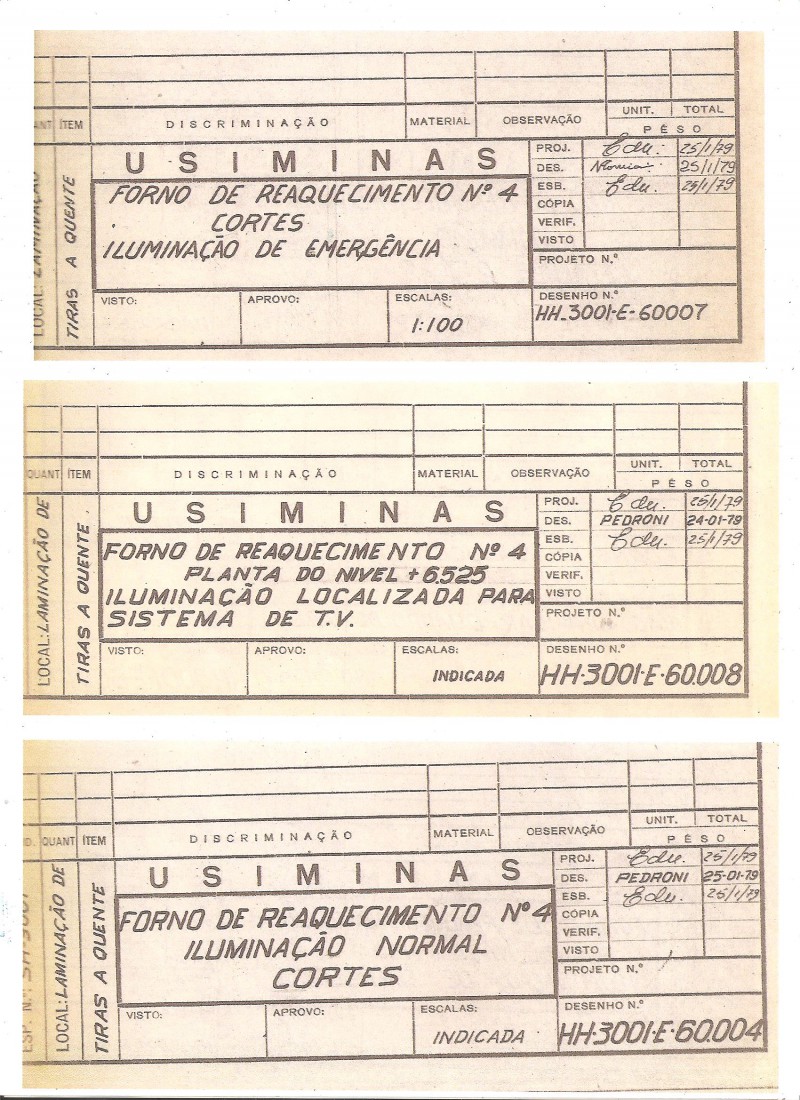 ANT ÍTEM DISCRIMINAÇÃO MATERIAL OBSERVAÇÃO UNIT. TOTAL
PÊSO
LOCAL: LAMINAÇÃO
TIRAS A QUENTE
USIMINAS
FORNO DE REAQUECIMENTO Nº 4
CORTES
ILUMINAÇÃO DE EMERGÊNCIA
VISTO: APROVO: ESCALAS:
1:100
PROJ. Edu. 25/1/79
DES. 25/1/79
ESB. Edu. 25/1/79
CÓPIA
VERIF.
VISTO
PROJETO N.º
DESENHO N.º
HH-3001-E-60007
QUANT ÍTEM DISCRIMINAÇÃO MATERIAL OBSERVAÇÃO UNIT. TOTAL
PÊSO
LOCAL: LAMINAÇÃO DE
TIRAS A QUENTE.
USIMINAS
FORNO DE REAQUECIMENTO Nº 4
PLANTA DO NIVEL +6.525
ILUMINAÇÃO LOCALIZADA PARA
SISTEMA DE T.V.
VISTO: APROVO: ESCALAS:
INDICADA
PROJ. Edu. 25/1/79
DES. PEDRONI 24-01-79
ESB. Edu. 25/1/79
CÓPIA
VERIF.
VISTO
PROJETO N.º
DESENHO N.º
HH-3001-E-60.008
D. QUANT ÍTEM DISCRIMINAÇÃO MATERIAL OBSERVAÇÃO UNIT. TOTAL
PÊSO
ESP. N.:
LOCAL: LAMINAÇÃO DE
TIRAS A QUENTE
USIMINAS
FORNO DE REAQUECIMENTO Nº 4
ILUMINAÇÃO NORMAL
CORTES
VISTO: APROVO: ESCALAS:
INDICADA
PROJ. Edu. 25/1/79
DES. PEDRONI 25-01-79
ESB. Edu. 25/1/79
CÓPIA
VERIF.
VISTO
PROJETO N.º
DESENHO N.º
HH-3001-E-60.004